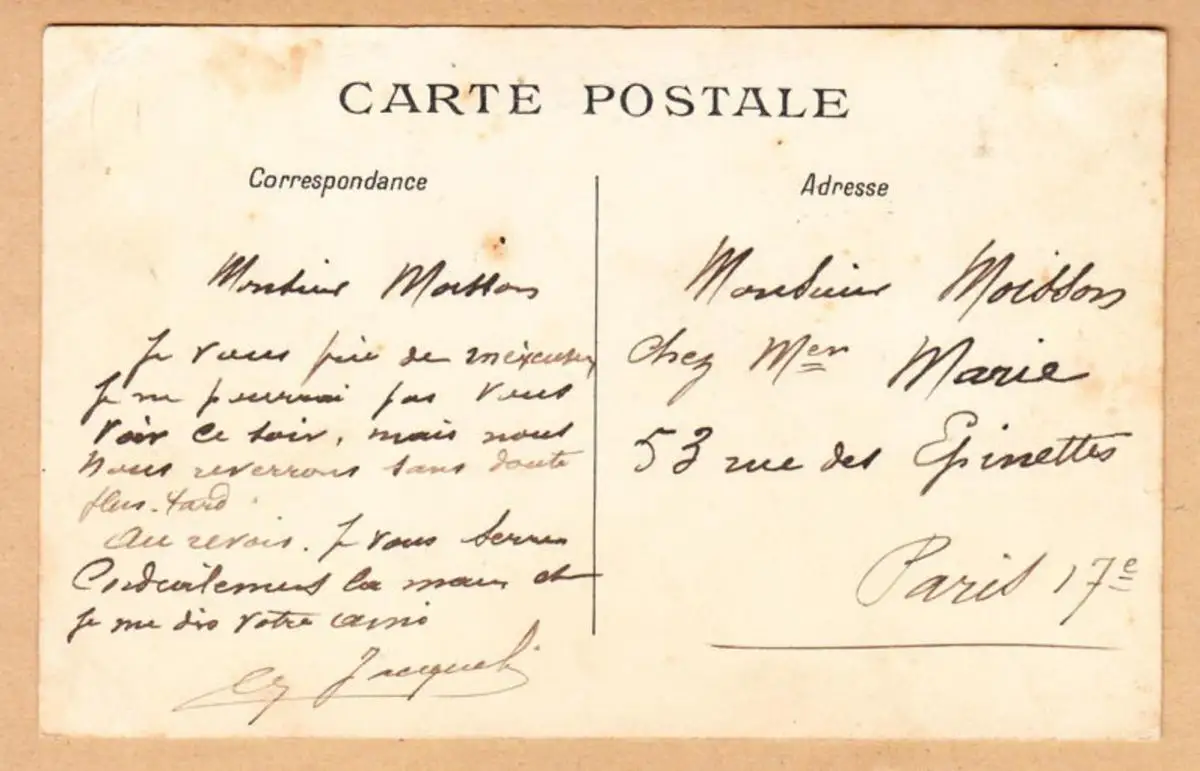 CARTE POSTALE
Correspondance
Monsieur Moisson
Je vous prie de m'excuser
Je ne pourrai pas vous
voir ce soir, mais nous
nous reverrons sans doute
plus tard.
Au revoir. Je vous serre
Cordialement la main et
je me dis votre ami
Jacquet
Adresse
Monsieur Moisson
Chez Mer Marie
53 rue des Epinettes
Paris 17e